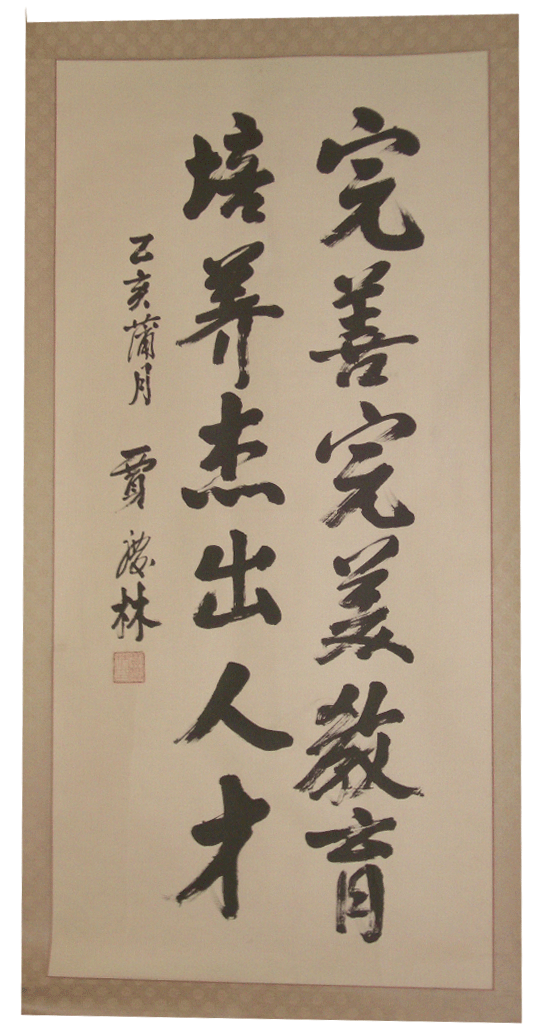 完善完美教育
培养杰出人才
乙亥蒲月 賈慶林